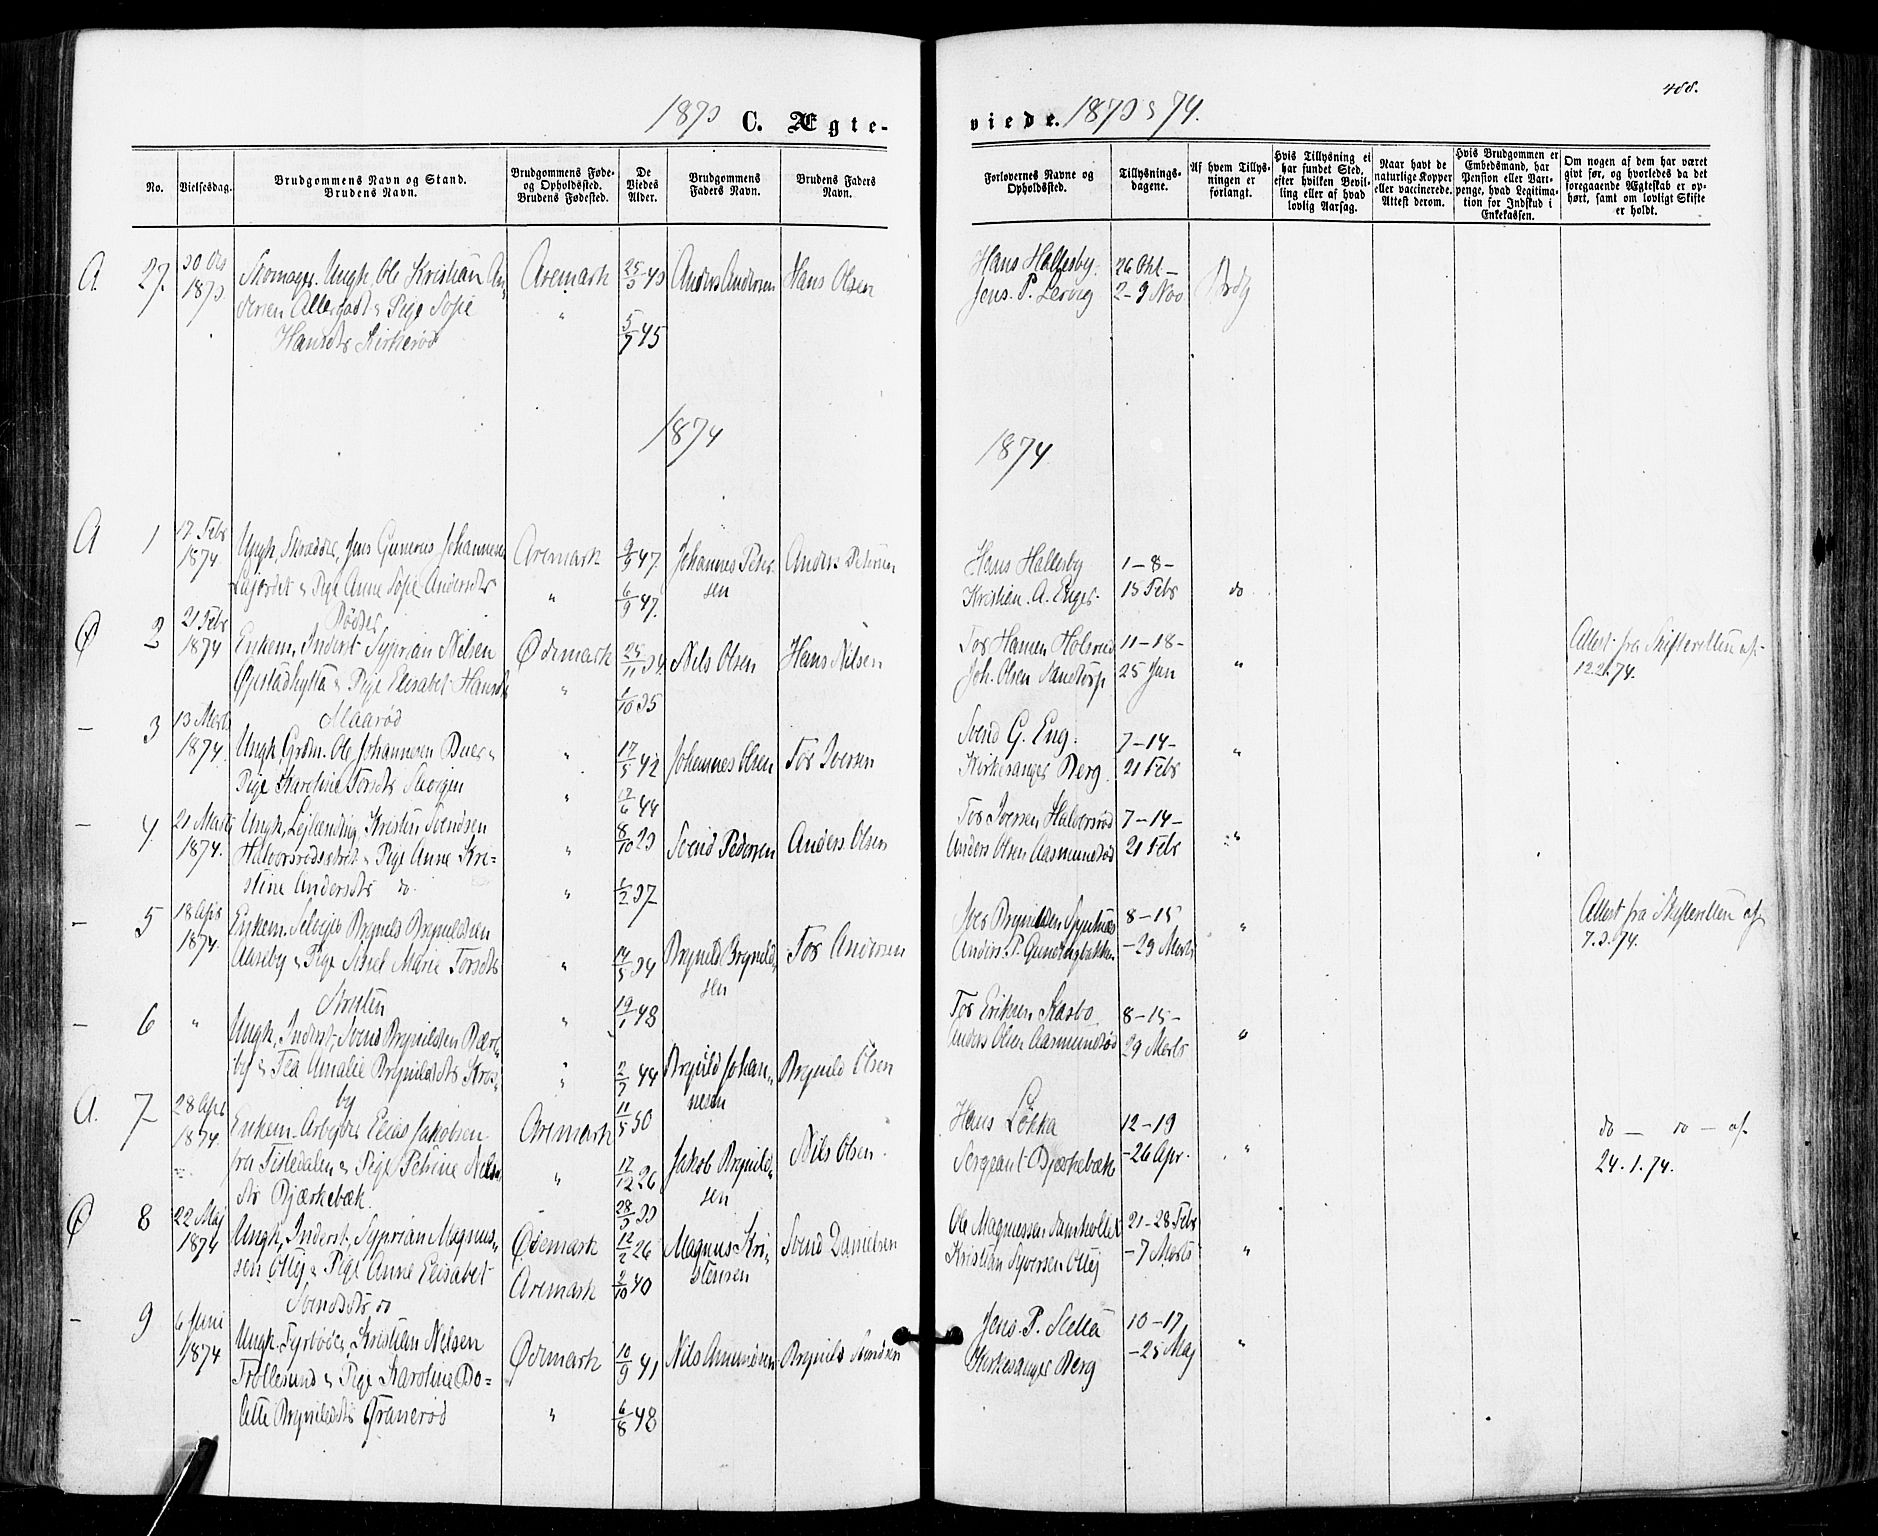 488.
1873 C. Ægte-
viede. 1873 & 74.
No.
Vielsesdag.
Brudgommens Navn og Stand.
Brudens Navn.
Brudgommens Føde-
og Opholdssted.
Brudens Fødested.
De
Viedes
Alder.
Brudgommens
Faders Navn.
Brudens Faders
Navn.
Forlovernes Navne og
Opholdssted.
Tillysnings-
dagene.
Af hvem Tillys-
ningen er
forlangt.
Hvis Tillysning ei
har fundet Sted,
efter hvilken Bevil-
ling eller af hvad
lovlig Aarsag.
Naar havt de
naturlige Kopper
eller vaccinerede.
Attest derom.
Hvis Brudgommen er
Embedsmand, har han
Pension eller Var-
penge, hvad Legitima-
tion for Indskud i
Enkekassen.
Om nogen af dem har været
givt før, og hvorledes da det
foregaaende Ægteskab er op-
hørt, samt om lovligt Skifte
er holdt.
A. 27. 30 Dcb 1873.
Skomager Ungk. Ole Kristian An-
dersen Allergodt & Pige Sofie
Hansdtr Kirkerød
Aremark
"
25/3 43
5/7 45
Anders Andersen
Hans Olsen
Hans Hallesby.
Jens. P. Lervig
26 Okt –
2–9 Nov
Brdg
1874
1874
A 1 17 Febr 1874
Ungk, Skrædder, Jens Gunerus Johannesen
& Pige Anne Sofie Andersdtr
Rødser
Aremark
"
9/9 47.
6/9 47.
Johannes Peter-
sen
Anders Petersen
Hans Hallesby
Kristian. A. Enger.
1–8–
15 Febr
do
Ø 2 21 Febr 1874
Enkem, Inderst Syprian Nilsen
Øjestadhytta & Pige Elisabet Hansdtr
Maarød
Ødemark
"
25/11 34.
1/10 35
Nils Olsen
Hans Nilsen
Tor Hansen Holsrød
Joh. Olsen Sandtorp
11–18–
25 Jan
"
Attest fra Skifteretten af
12.2.74.
– 3 13 Marts 1874.
Ungk, Grdm. Ole Johannesen Buer &
Pige Karoline Torsdtr Skogen
"
"
17/5 42
9/6 44
Johannes Olsen
Tor Iversen
Svend G. Eng.
Kirkesanger Berg.
7–14–
21 Febr
"
– 4. 21 Marts 1874.
Ungk, Lejlending, Kristen Svendsen
Halvorsrødeiet & Pige Anne Kri-
stine Andersdtr do.
"
"
8/10 29
1/2 37
Svend Pedersen
Anders Olsen
Tor Iversen Halvorsrød
Anders Olsen Aasmundrød
7–14–
21 Febr
"
– 5 18 Apr 1874
Enkem. Selvejer Brynild Brynildsen
Aaseby & Pige Sissel Marie Torsdtr
"
"
14/5 34
19/1 48
Brynild Brynild-
sen
Tor Andersen
Iver Brynildsen
Anders. P.
8–15
–29 Marts
"
Attest fra Skifteretten af
7.3.74.
– 6 "
Ungk, Inderst, Svend Brynildsen Bære-
by & Tea Amalie Brynildsdtr Kros-
by
"
"
2/7 44
11/5 50
Brynild Johan-
nesen
Brynild Olsen
Tor Eriksen Kasbo
Anders Olsen Aasmundrød
8–15–
29 Marts
"
A. 7 28 Apr 1874
Enkem. Arbejder Elias Jakobsen
fra Tistedalen & Pige Petrine Nils-
dtr Bjærkebæk.
Aremark
"
17/12 26
28/3 33
Jakob Brynild-
sen
Nils Olsen.
Hans Løkka
Sergeant Bjærkebæk
12–19
–26 Apr.
"
do – do – af
24.1.74.
Ø 8 22 Maj 1874
Ungk, Inderst, Syprian Magnus-
sen Ottej & Pige Anne Elisabet
Svendsdtr do
Ødemark
Aremark
12/2 26
2/10 40
Magnus Kri-
stensen
Svend Danielsen
Ole Magnussen
Kristian Syversen Ottej
21–28 Febr
–7 Marts
"
– 9 6 Juni 1874
Ungk. Fyrbøder, Kristian Nilsen
Trollesund & Pige Karoline Bo-
lette Brynildsdtr Granerød
Ødemark
"
10/9 41
6/8 48
Nils Amundsen
Brynild Svendsen
Jens. P. Sletta
Kirkesanger Berg
10–17,
–25 Maj
"